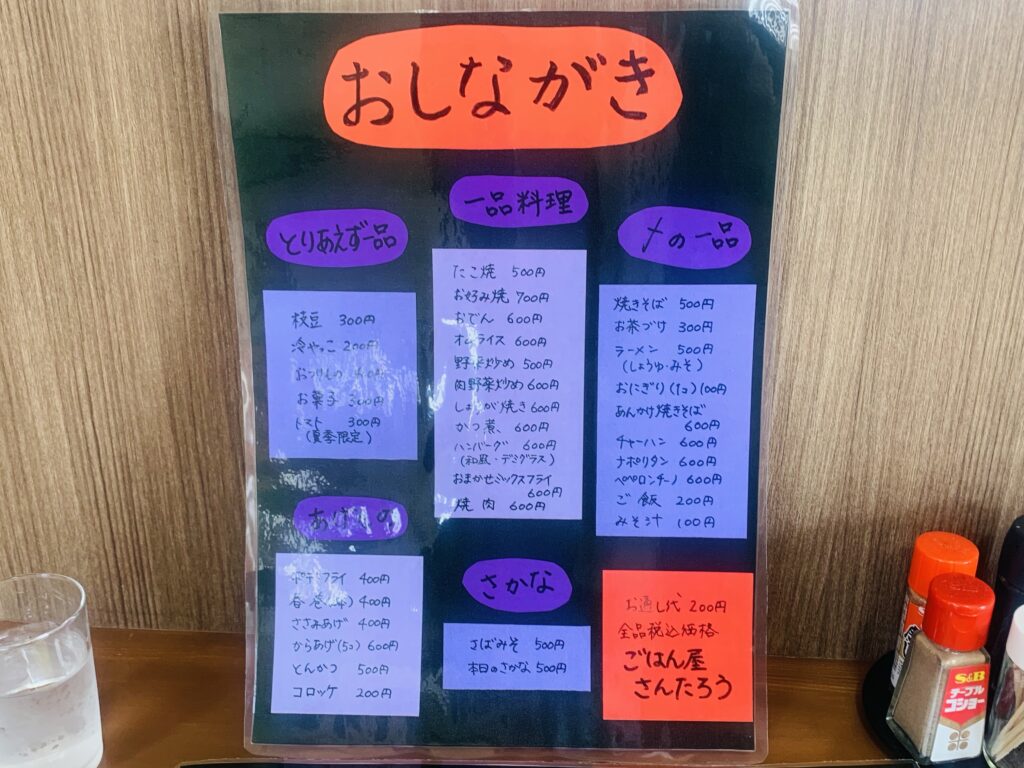 おしながき
とりあえず一品
枝豆 300円
冷やっこ 200円
おつけもの
お菓子 300円
トマト 300円
(夏季限定)
あげもの
ポテトフライ 400円
春巻 400円
ささみあげ 400円
からあげ(5コ) 600円
とんかつ 500円
コロッケ 200円
一品料理
たこ焼 500円
お好み焼 700円
おでん 600円
オムライス 600円
野菜炒め 500円
肉野菜炒め 600円
しょうが焼き 600円
かつ煮、 600円
ハンバーグ 600円
(和風・デミグラス)
おまかせミックスフライ
600円
焼肉 600円
さかな
さばみそ 500円
本日のさかな 500円
〆の一品
焼きそば 500円
お茶づけ 300円
ラーメン 500円
(しょうゆ・みそ)
おにぎり(1コ) 100円
あんかけ焼きそば
600円
チャーハン 600円
ナポリタン 600円
ペペロンチーノ 600円
ご飯 200円
みそ汁 100円
お通し代 200円
全品税込価格
ごはん屋
さんたろう
S&B
テーブル
コショー